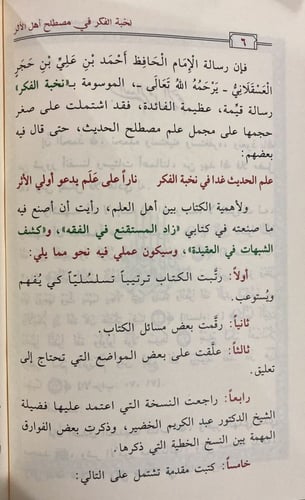 ٦
نخبة الفكر في مصطلح أهل الأثر
فإن رسالة الإِمَامِ الْحَافِظِ أَحْمَدَ بْنِ عَلِيِّ بْنِ حَجَرٍ
الْعَسْقَلَانِيِّ - يَرْحَمُهُ اللهُ تَعَالَى - الموسومة بـ«نخبة الفكر»
رسالة قيِّمة، عظيمة الفائدة، فقد اشتملت على صغر
حجمها على مجمل علم مصطلح الحديث، حتى قال فيه
بعضهم:
علم الحديث غدا في نخبة الفكر ناراً على عَلَمٍ يدعو أولي الأثر
ولأهمية الكتاب بين أهل العلم، رأيت أن أصنع فيه
ما صنعته في كتابي «زاد المستقنع في الفقه»، و«كشف
الشبهات في العقيدة»، وسيكون عملي فيه نحو مما يلي:
أولاً: رتَّبت الكتاب ترتيباً تسلسليّاً كي يُفهم
ويُستوعب.
ثانياً: رقَّمت بعض مسائل الكتاب.
ثالثاً: علَّقت على بعض المواضع التي تحتاج إلى
تعليق.
رابعاً: راجعت النسخة التي اعتمد عليها فضيلة
الشيخ الدكتور عبد الكريم الخضير، وذكرت بعض الفوارق
المهمة بين النسخ الخطية التي ذكرها.
خامساً: كتبت مقدمة تشتمل على التالي: